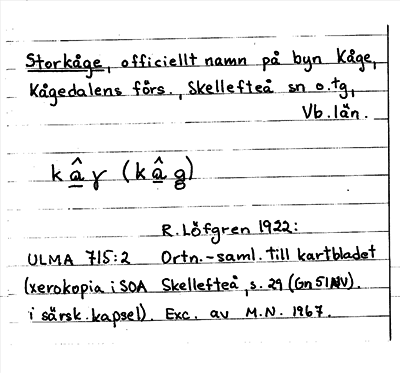 Storkåge, officiellt namn på byn Kåge,
Kågedalens förs., Skellefteå sn o. tg,
Vb. län.
k â̲ ɣ (k â̲ g)
R. Löfgren 1922:
ULMA 715:2 Ortn.-saml. till kartbladet
(xerokopia i SOA Skellefteå, s. 29 (Gn 51 NV).
i särsk. kapsel). Exc. av M.N. 1967.